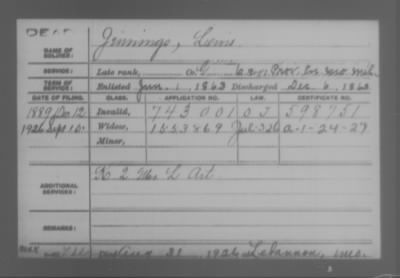 DEAF
NAME OF SOLDIER: Jennings, Louis
SERVICE: Late rank, Co. G 6 Prov. En. Mo. Mil.
TERM OF SERVICE: Enlisted Jun. 1, 1863 Discharged Dec. 6, 1863
DATE OF FILING. CLASS. APPLICATION NO. LAW. CERTIFICATE NO.
Invalid, 743 001 598751
1926 Sept. Widow, 1553869 A-1-24-27
Minor,
ADDITIONAL SERVICES: K. 2 Mo. L. Art.
REMARKS:
Aug 31, 1926 Lebannon, Mo.